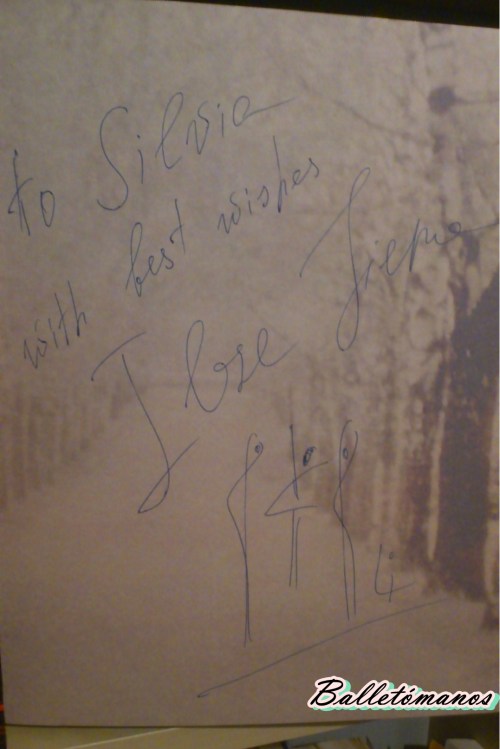 to Silvia
with best wishes
Ilse Liepa
4
Balletómanos